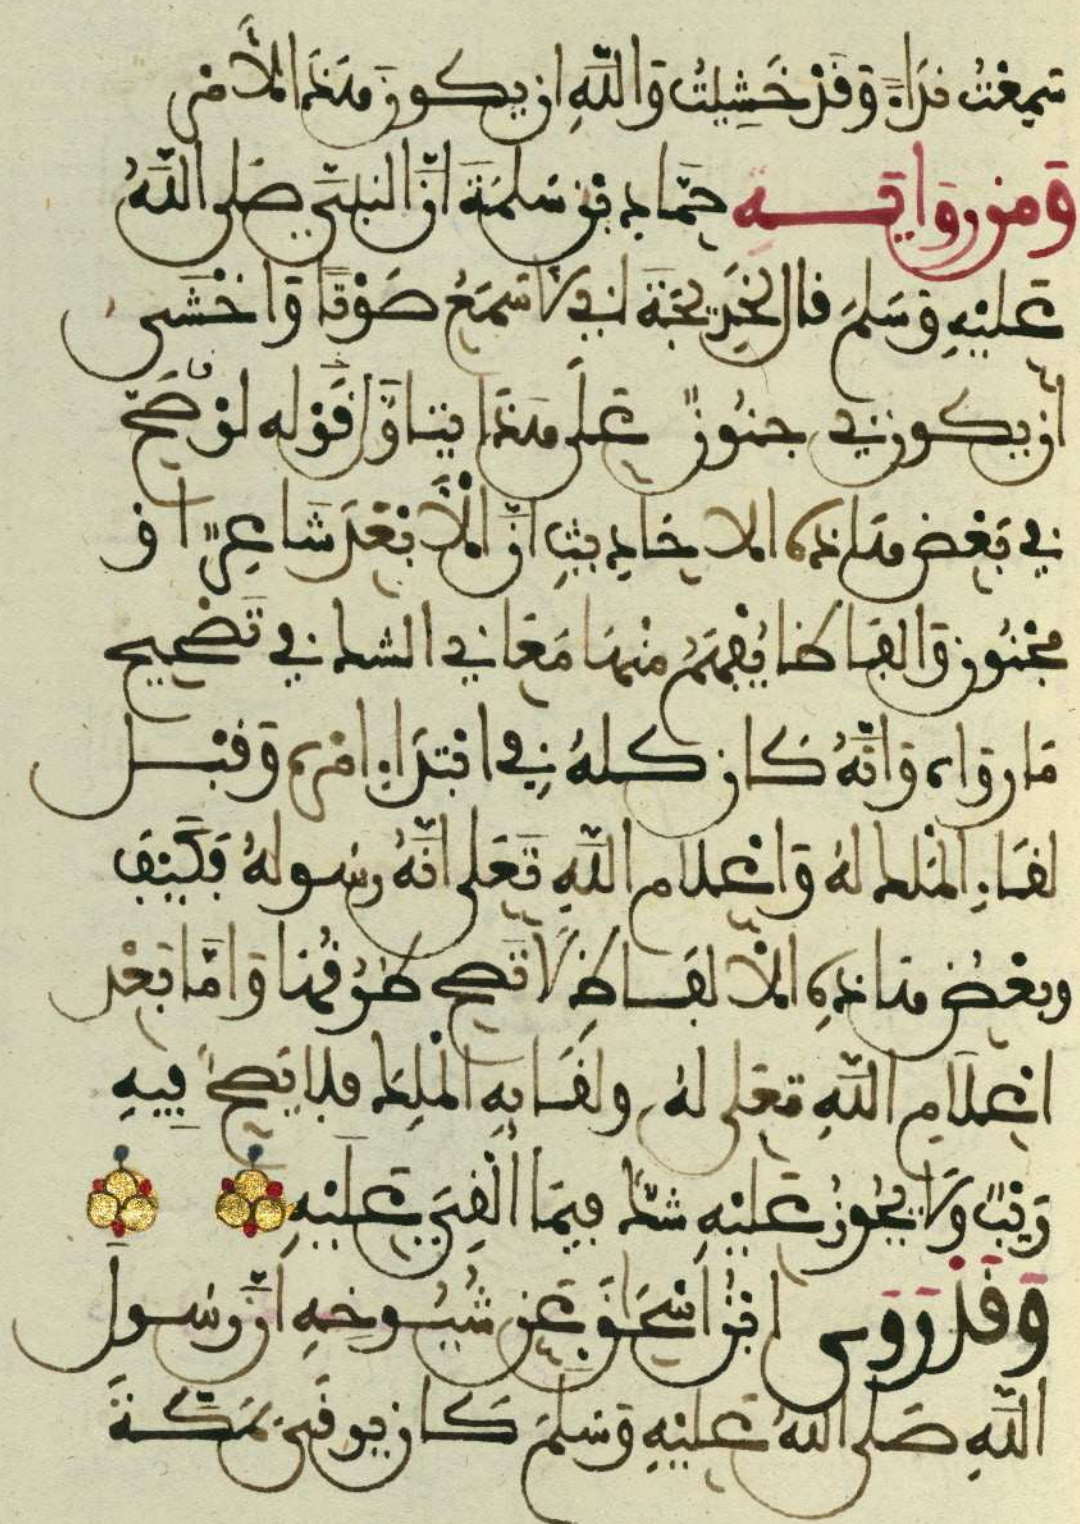 سَمِعْتُ نِدَاءً وَقَدْ خَشِيتُ وَاللَّهِ ان يكون هَذَا لِأَمْرٍ
وَمن رِوَايَةِ حَمَّادِ بْنِ سَلَمَةَ أَنَّ النبيَّ صَلى اللَّهُ
عَلَيْهِ وَسَلمَ قال لِخَدِيجَةَ إني لَأَسْمَعُ صَوْتًا وَأَخْشَى
أن يكون بي جنُونٌ عَلَى هَذَا يتأوَّل قَوْله لوْ صَحَّ
في بَعْضِ هَذِهِ الاحَادِيثِ أنَّ الْأَبْعَدَ شَاعِرٌ اوْ
مَجْنُون وَالفَاظًا يُفْهَمُ مِنْهَا مَعَاني الشك في تَصْحِيحِ
مَا رَوَاه وَانَّهُ كَان كلهُ فِي ابْتِدَاءِ امْرِهِ وَقبْل
لقَاءِ الْمَلك لهُ وَإِعْلَامِ اللَّهِ تَعَلى انَّهُ رسُولهُ فَكَيْفَ
وبعْضُ هَذِهِ الْألفَاظِ لَا تَصِح طُرُقُهَا وَامَّا بَعْد
اعْلَامِ اللَّهِ تعَلى لهُ ولقَايهِ الْمَلكَ فلا يَصِحُّ فِيهِ
رَيْبٌ وَلَا يَجُوزُ عَلَيْهِ شكٌّ فِيمَا أُلْقِيَ عَلَيْهِ
وَقدْ رَوَى ابْنُ اسْحَاقَ عَن شُيُوخِهِ أنَّ رسُول
اللَّهِ صَلى اللهُ عَليْهِ وَسَلمَ كَان يرقَى بمَكّةَ